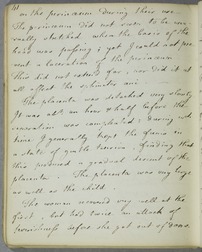 on the perinaeum during these
The perinaeum did not seem to be
usually stretched when the base of the
head was passing; yet I could not pre
vent a laceration of the perinaeum
this did not extend far, nor did it at
all affect the sphincter ani.
The placenta was detached very slowly
It was abt an hour & half before the
separation was completed: during wch
time I generally kept the funis in
a state of gentle tension, finding that
this produced a gradual descent of the
placenta. The placenta was very large
as well as the child.
The woman recovered very well at the
first, but had twice an attack of
before she got out of doors.